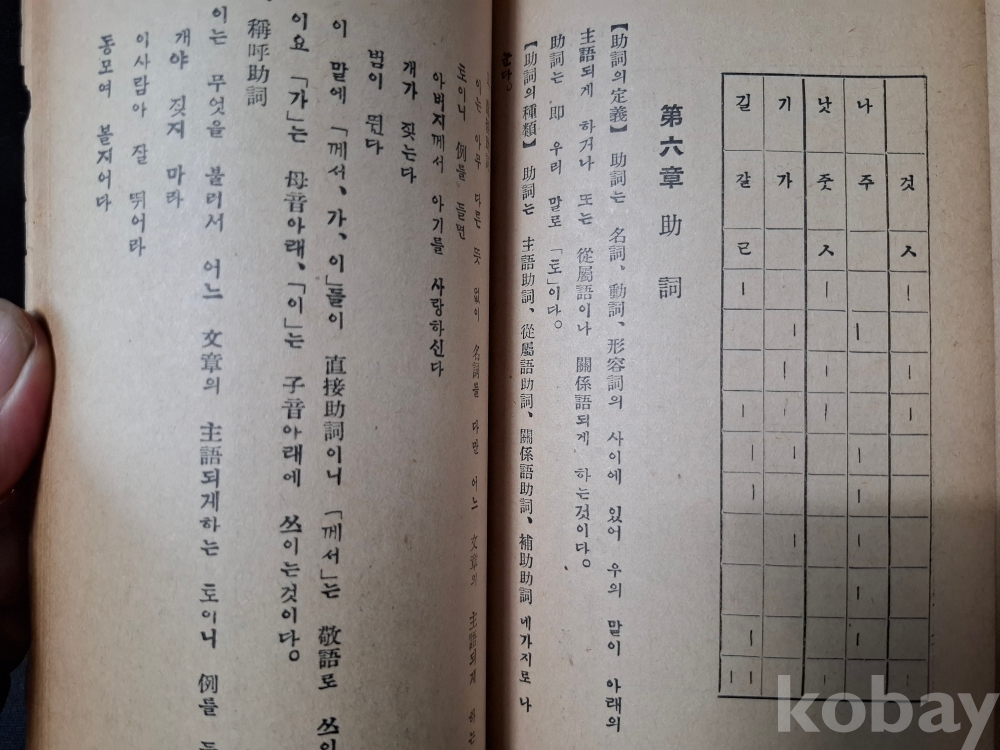 것 ㅅ
나 주
낫 줏 ㅅ
기 가
길 갈 ㄹ
第六章 助 詞
【助詞의 定義】 助詞는 名詞、動詞、形容詞의 사이에 있어 우의 말이 아래의
主語되게 하거나 또는 從屬語이나 關係語되게 하는것이다。
助詞는 即 우리 말로 「토」이다。
【助詞의 種類】 助詞는 主語助詞、從屬語助詞、關係語助詞、補助助詞 네가지로 나
눈다。
이는 아무 다른 뜻 없이 名詞를 다만 어느 文章의 主語되게
토이니 例를 들면
아버지께서 아기를 사랑하신다
개가 짖는다
범이 뛴다
이 말에 「께서、가、이」들이 直接助詞이니 「께서」는 敬語로 쓰이
이요 「가」는 母音아래、「이」는 子音아래에 쓰이는것이다。
稱呼助詞
이는 무엇을 불러서 어느 文章의 主語되게하는 토이니 例를
개야 짖지 마라
이사람아 잘 뛰어라
동모여 볼지어다
kobay